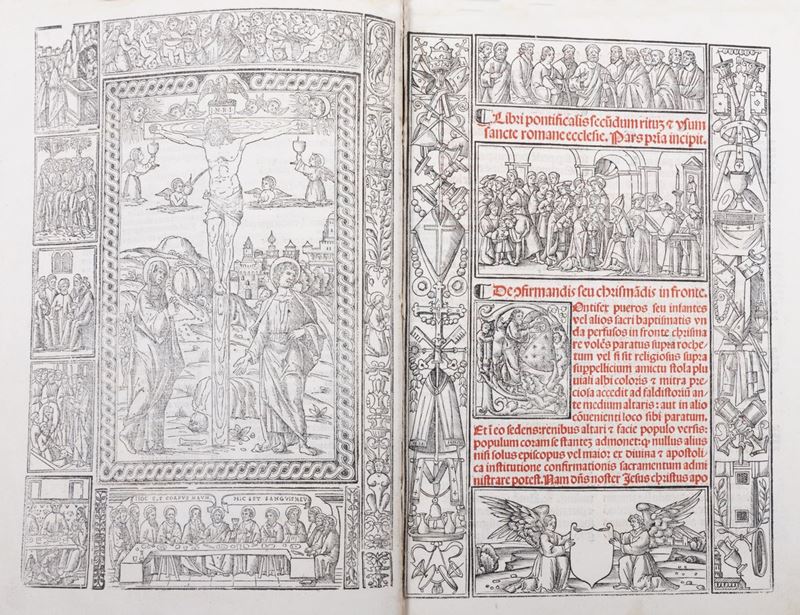 I.N.R.I
HOC E.S CORPVS MAVM
HIC EST SANGVIS MEV
Libri pontificalis secūdum rituʒ ⁊ vsum
sancte romane ecclesie. Pars prīa incipit.
De ↄfirmandis seu chrismādis in fronte.
Pontifex pueros seu infantes
vel alios sacri baptismatis vn
da perfusos in fronte chrisma
re volēs paratus supra roche-
tum vel si sit religiosus supra
suppellicium amictu stola plu
uiali albi coloris ⁊ mitra pre
ciosa accedit ad faldistoriū an-
te medium altaris: aut in alio
cōuenienti loco sibi paratum.
Et ī eo sedens: renibus altari ⁊ facie populo versis:
populum coram se stanteʒ admonet: ꝙ nullus alius
nisi solus episcopus vel maior ex diuina ⁊ apostoli-
ca institutione confirmationis sacramentum admi
nistrare potest. Nam dn̄s noster Jesus christus apo